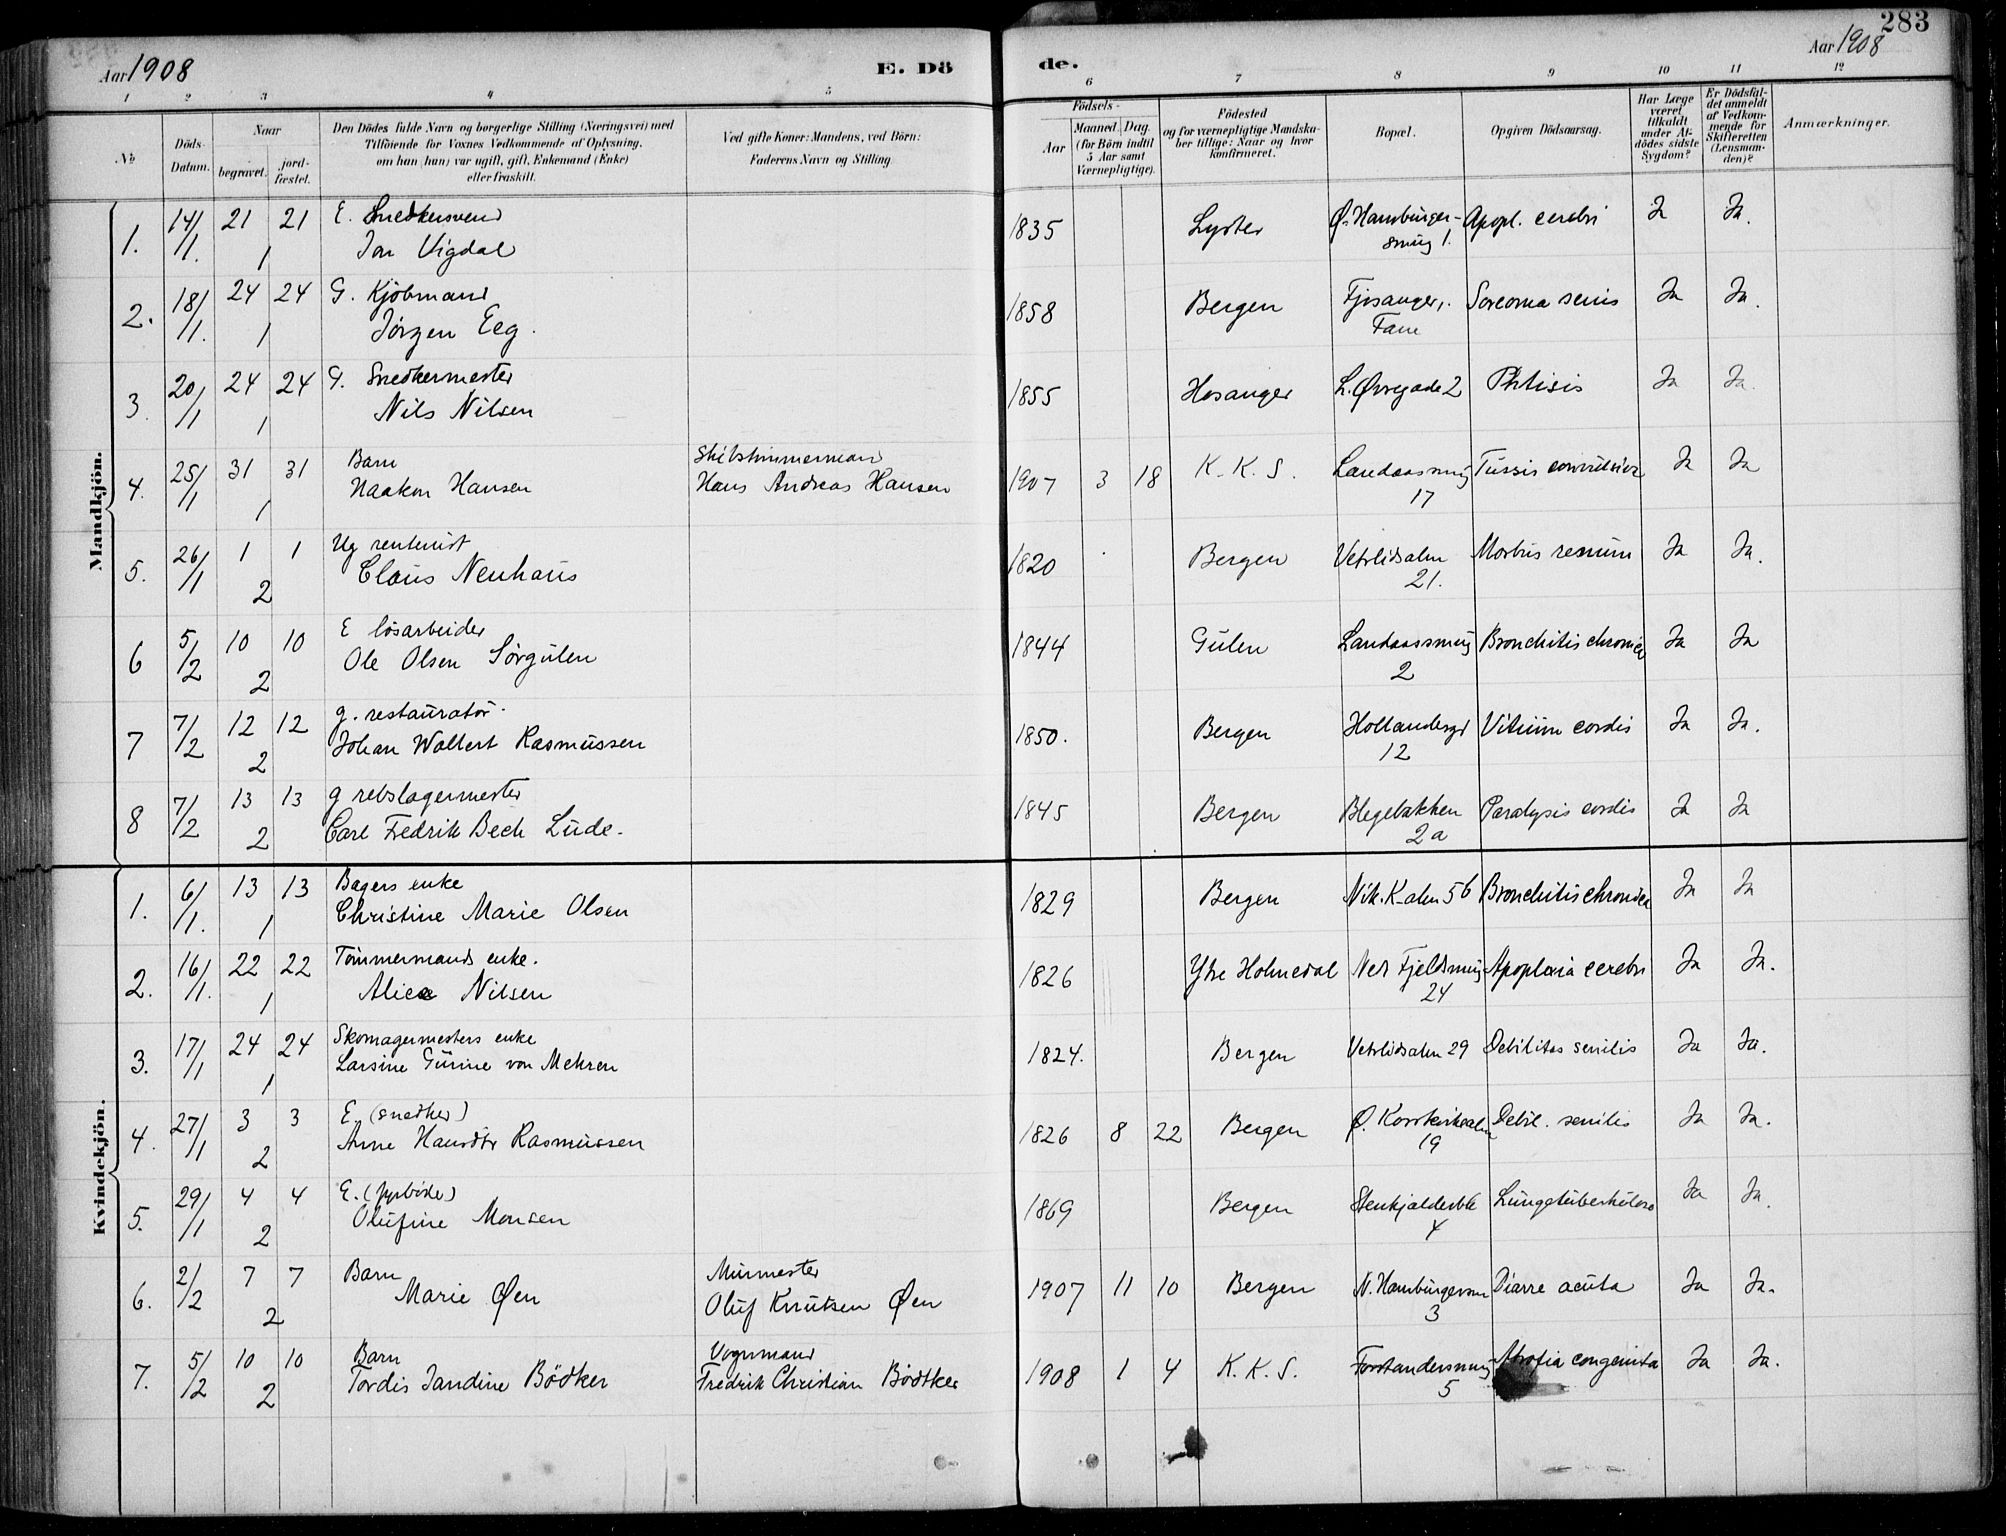 283
Aar 1908
E. Dö
de.
Aar 1908
1 2 3 4 5 6 7 8 9 10 11 12
No
Döds-Datum.
Naar
begravet.
jord-fæstet.
Den Dödes fulde Navn og borgerlige Stilling (Næringsvei) med
Tilföiende for Voxnes Vedkommende af Oplysning,
om han (hun) var ugift, gift, Enkemand (Enke)
eller fraskilt.
Ved gifte Koner: Mandens, ved Börn:
Faderens Navn og Stilling
Födsels-
Aar
Maaned. Dag.
(for Börn indtil
5 Aar samt
Værnepligtige).
Födested
og for værnepligtige Mandska-
ber tillige: Naar og hvor
konfirmeret.
Bopæl.
Opgiven Dödsaarsag.
Har Læge
været
tilkaldt
under Af-
dödes sidste
Sygdom?
Er Dödsfal-
det anmeldt
af Vedkom-
mende for
Skifteretten
(Lensman-
den)?
Anmærkninger.
Mandkjön.
1. 14/1. 21 21 E. Snedkersvend 1835 Lyster Ø. Hamburger- Apopl. cerebri Ja Ja.
1 Jon Vigdal smug 1.
2. 18/1. 24 24 G. Kjöbmand 1858 Bergen Fjøsanger, Ja Ja.
1 Jörgen Eeg. Fane
3. 20/1 24 24 G. Snedkermester 1855 Hosanger L. Øvregade 2 Phtisis Ja Ja.
1 Nils Nilsen
4. 25/1 31 31 Barn Skibstimmermand 1907 3 18 K. K. S. Landaassmug Tussis convulsiva Ja Ja
1 Haakon Hansen Hans Andreas Hansen 17
5. 26/1 1 1 Ug rentenist 1820 Bergen Vetrlidsalm Morbus renum Ja Ja.
2 Claus Neuhaus 21.
6 5/2 10 10 E lösarbeider 1844 Gulen Landaassmug Bronchitis chronica Ja Ja
2 Ole Olsen Sörgulen 2
7 7/2 12 12 g. restauratör. 1850. Bergen Hollendergd Vitium cordis Ja Ja.
2 Johan Woltert Rasmussen 12
8 7/2 13 13 g rebslagermester 1845 Bergen Blegebakken Paralysis cordis Ja Ja
2 Carl Fredrik Bech Lude. 2a
Kvindekjön.
1. 6/1. 13 13 Bagers enke 1829 Bergen Nik. K-alm 56 Bronchitis chronica Ja Ja
1 Christine Marie Olsen
2. 16/1. 22 22 Tömmermands enke. 1826 Ytre Holmedal Ned Fjeldsmug Apoplexia cerebri Ja Ja.
1 Alice Nilsen 24
3. 17/1 24 24 Skomagermesters enke 1824. Bergen Vetrlidsalm 29 Debilitas senilis Ja Ja.
1 Larsine Gurine von Mehren
4. 27/1 3 3 E. (snedker) 1826 8 22 Bergen Ø. Korskirkealm Debil. senilis Ja Ja.
2 Anne Hansdtr Rasmussen 19
5. 29/1 4 4 E. (fyrböder) 1869 Bergen Stenkjælderbk Lungetuberkulose Ja Ja.
2 Olufine Monsen 4
6. 2/2 7 7 Barn Murmester 1907 11 10 Bergen N. Hamburgersm Diarre acuta Ja Ja.
2 Marie Øen Oluf Knutsen Øen 3
7. 5/2 10 10 Barn Vognmand 1908 1 4 K. K. S. Forstandersmug Atrofia congenita Ja Ja.
2 Tordis Jandine Bödker Fredrik Christian Bödtker 5